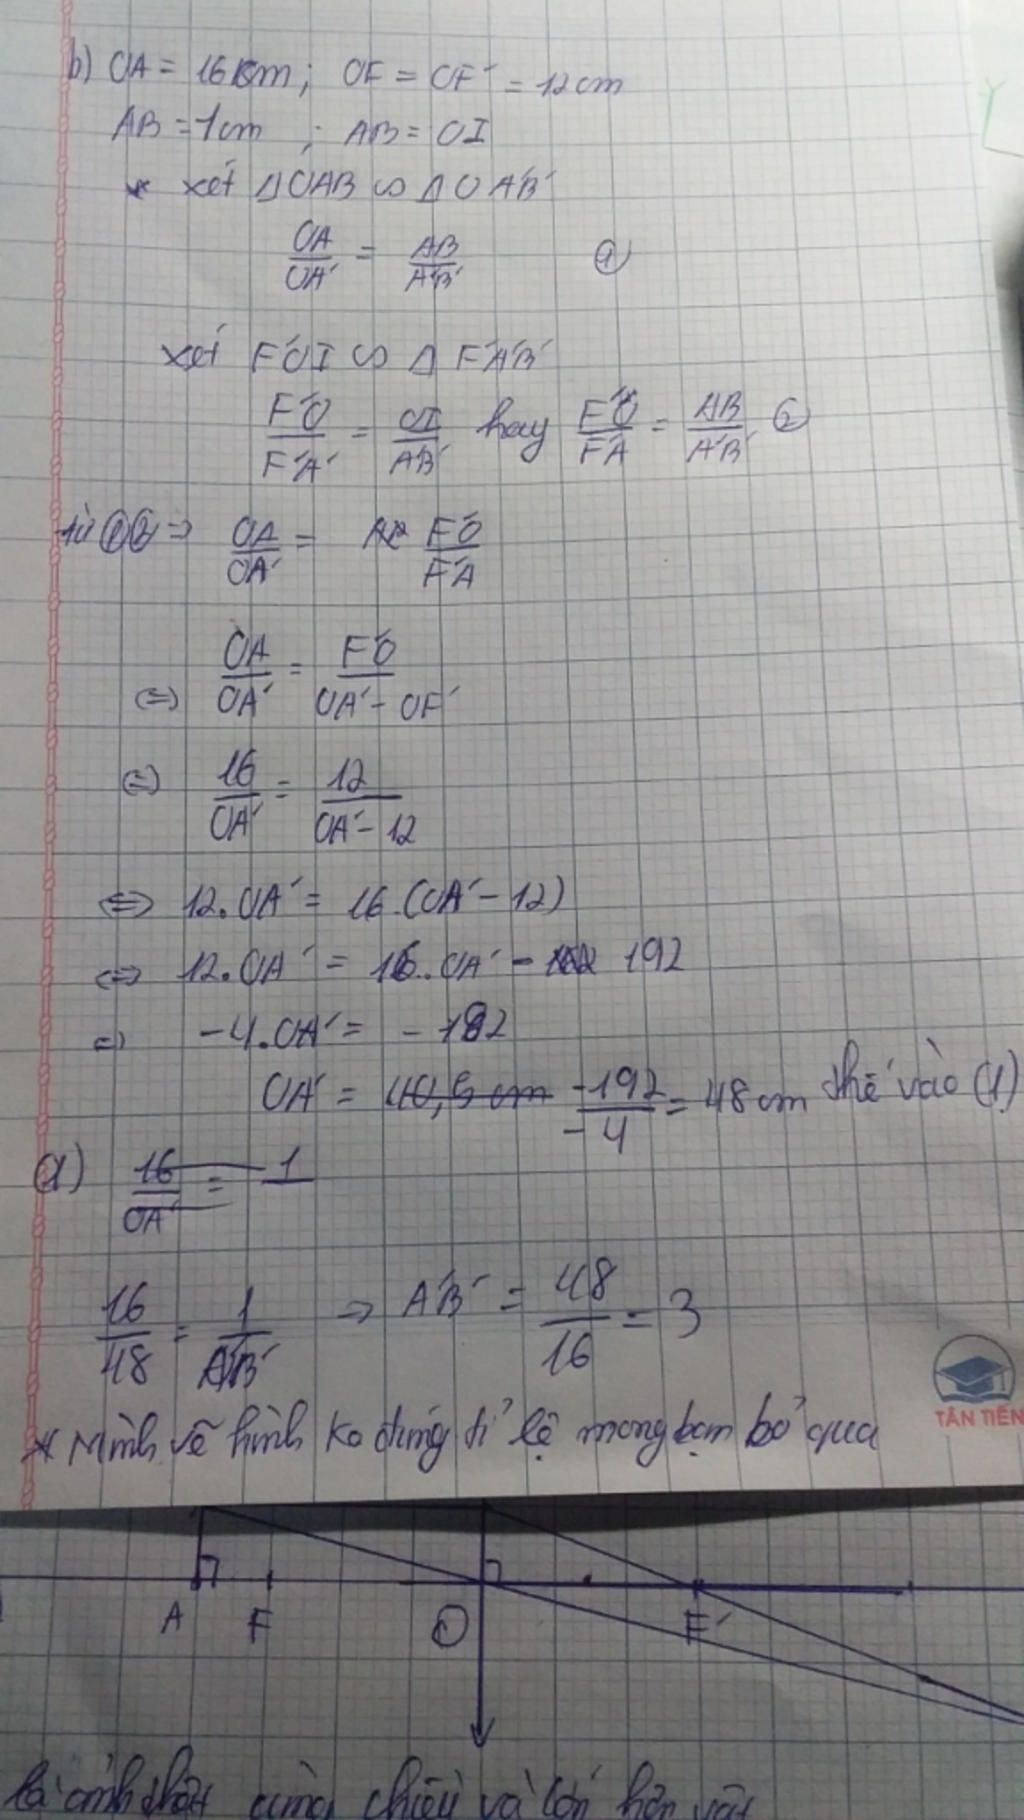 b) OA = 16cm; OF = OF' = 12cm
AB = 1cm ; AB = OI
* xét ΔOAB ∽ ΔOA'B'
OA/OA' = AB/A'B' (1)
xét F'OI ∽ Δ F'A'B'
F'O/F'A' = OI/A'B' hay F'O/F'A' = AB/A'B' (2)
từ (1)(2) => OA/OA' = F'O/F'A'
(=) OA/OA' = F'O/OA' - OF'
(=) 16/OA' = 12/OA' - 12
<=> 12.OA' = 16.(OA' - 12)
<=> 12.OA' = 16.OA' - 192
=) -4.OA' = - 192
OA' = 40,5 cm -192/-4 = 48cm thế vào (1)
(1) 16/OA' = 1
16/48 = 1/A'B' => A'B' = 48/16 = 3
* Mình vẽ hình ko đúng tỉ lệ mong bạn bỏ qua
TÂN TIẾN
A F O F'
là ảnh thật cùng chiều và lớn hơn vật